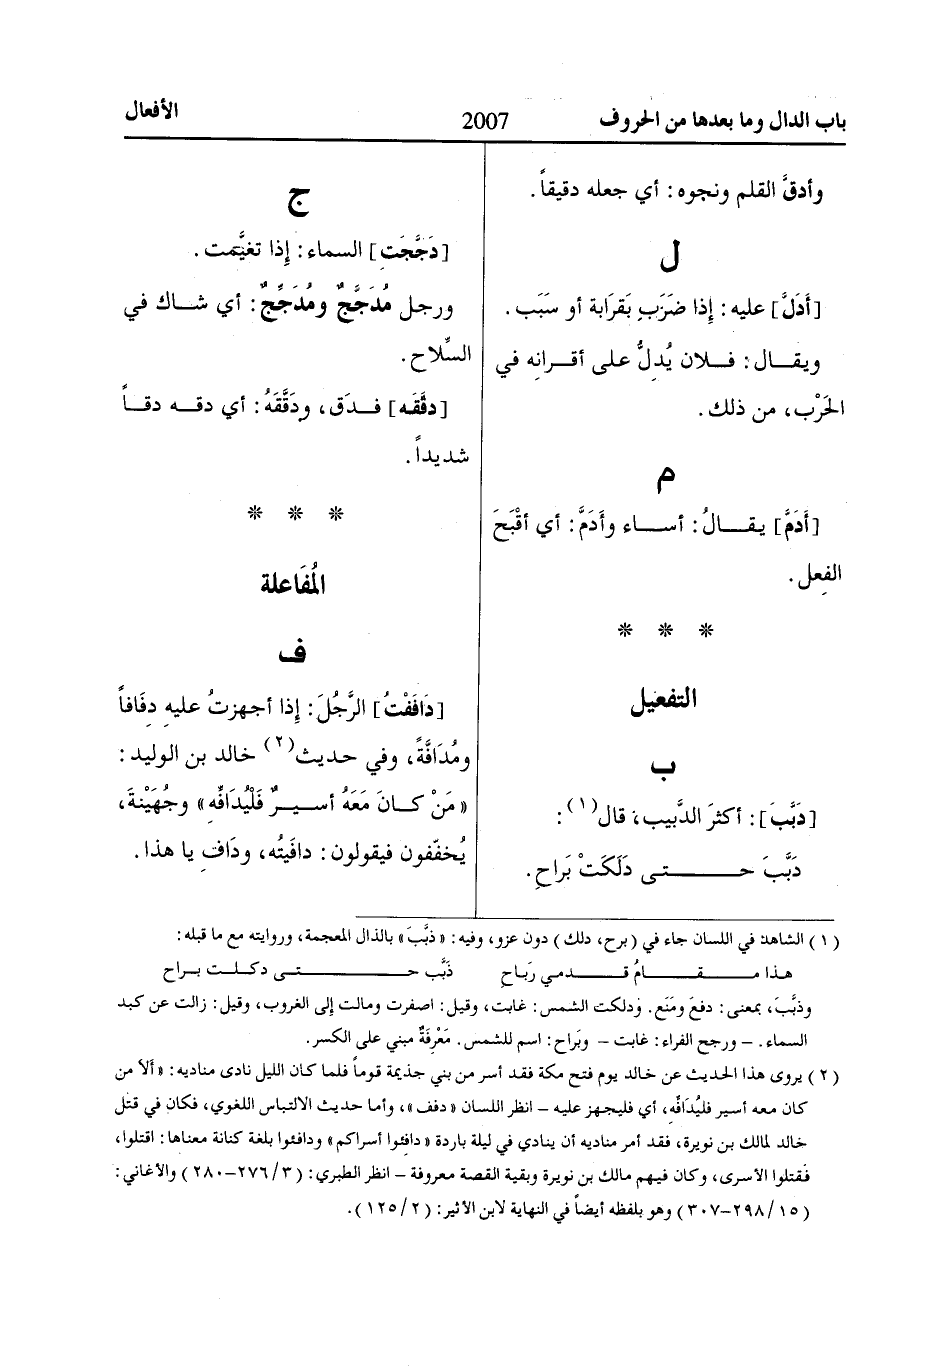 باب الدال وما بعدها من الحروف 2007 الأفعال
وأدقَّ القلم ونجوه: أي جعله دقيقاً.
ل
[أَدَلَّ] عليه: إذا ضَرَبَ بقَرابة أو سبَب.
ويقال: فلان يُدِلُّ على أقرانه في
الحَرْب، من ذلك.
م
[أَدَمَّ] يقالُ: أساء وأَدَمَّ: أي أقْبَحَ
الفِعل.
* * *
التفعيل
ب
[دَبَّبَ]: أكثرَ الدَّبيب، قال(١):
دَبَّبَ حتى دَلَكَتْ بَراحِ.
ج
[دَجَّجَت] السماء: إذا تغيَّمت.
ورجل مُدَجَّجٌ ومُدَجِّجٌ: أي شاك في
السِّلاح.
[دقَّقه] فدَق، ودَقَّقَهُ: أي دقه دقاً
شديداً.
* * *
المُفَاعلة
ف
[دَافَفْتُ] الرَّجُلَ: إذا أجهزتُ عليه دِفَافاً
ومُدَافَّةً، وفي حديث(٢) خالد بن الوليد:
«مَنْ كان مَعَهُ أسيرٌ فَلْيُدَافِّه» وجُهَيْنةَ،
يُخفّفون فيقولون: دافيتُه، ودَافِ يا هذا.
(١) الشاهد في اللسان جاء في (برح، دلك) دون عزو، وفيه: «ذبَّبَ» بالذال المعجمة، وروايته مع ما قبله:
هذا مقامُ قدمي رَباح ذَبَّب حتى دكلت براح
وذبَّبَ، بمعنى: دفعَ ومَنَع. ودلكت الشمس: غابت، وقيل: اصفرت ومالت إلى الغروب، وقيل: زالت عن كبد
السماء. – ورجح الفراء: غابت – وبَراح: اسم للشمس. مَعْرِفَةٌ مبني على الكسر.
(٢) يروى هذا الحديث عن خالد يوم فتح مكة فقد أسر من بني جذيمة قوماً فلما كان الليل نادى مناديه: «ألا من
كان معه أسير فليُدَافِّه، أي فليجهز عليه – انظر اللسان «دفف»، وأما حديث الالتباس اللغوي، فكان في قتل
خالد لمالك بن نويرة، فقد أمر مناديه أن ينادي في ليلة باردة «دافِئوا أسراكم» ودافئوا بلغة كنانة معناها: اقتلوا،
فَقتلوا الأسرى، وكان فيهم مالك بن نويرة وبقية القصة معروفة – انظر الطبري: (٣/ ٢٧٦–٢٨٠) والأغاني:
(١٥/ ٢٩٨–٣٠٧) وهو بلفظه أيضاً في النهاية لابن الأثير: (٢/ ١٢٥).